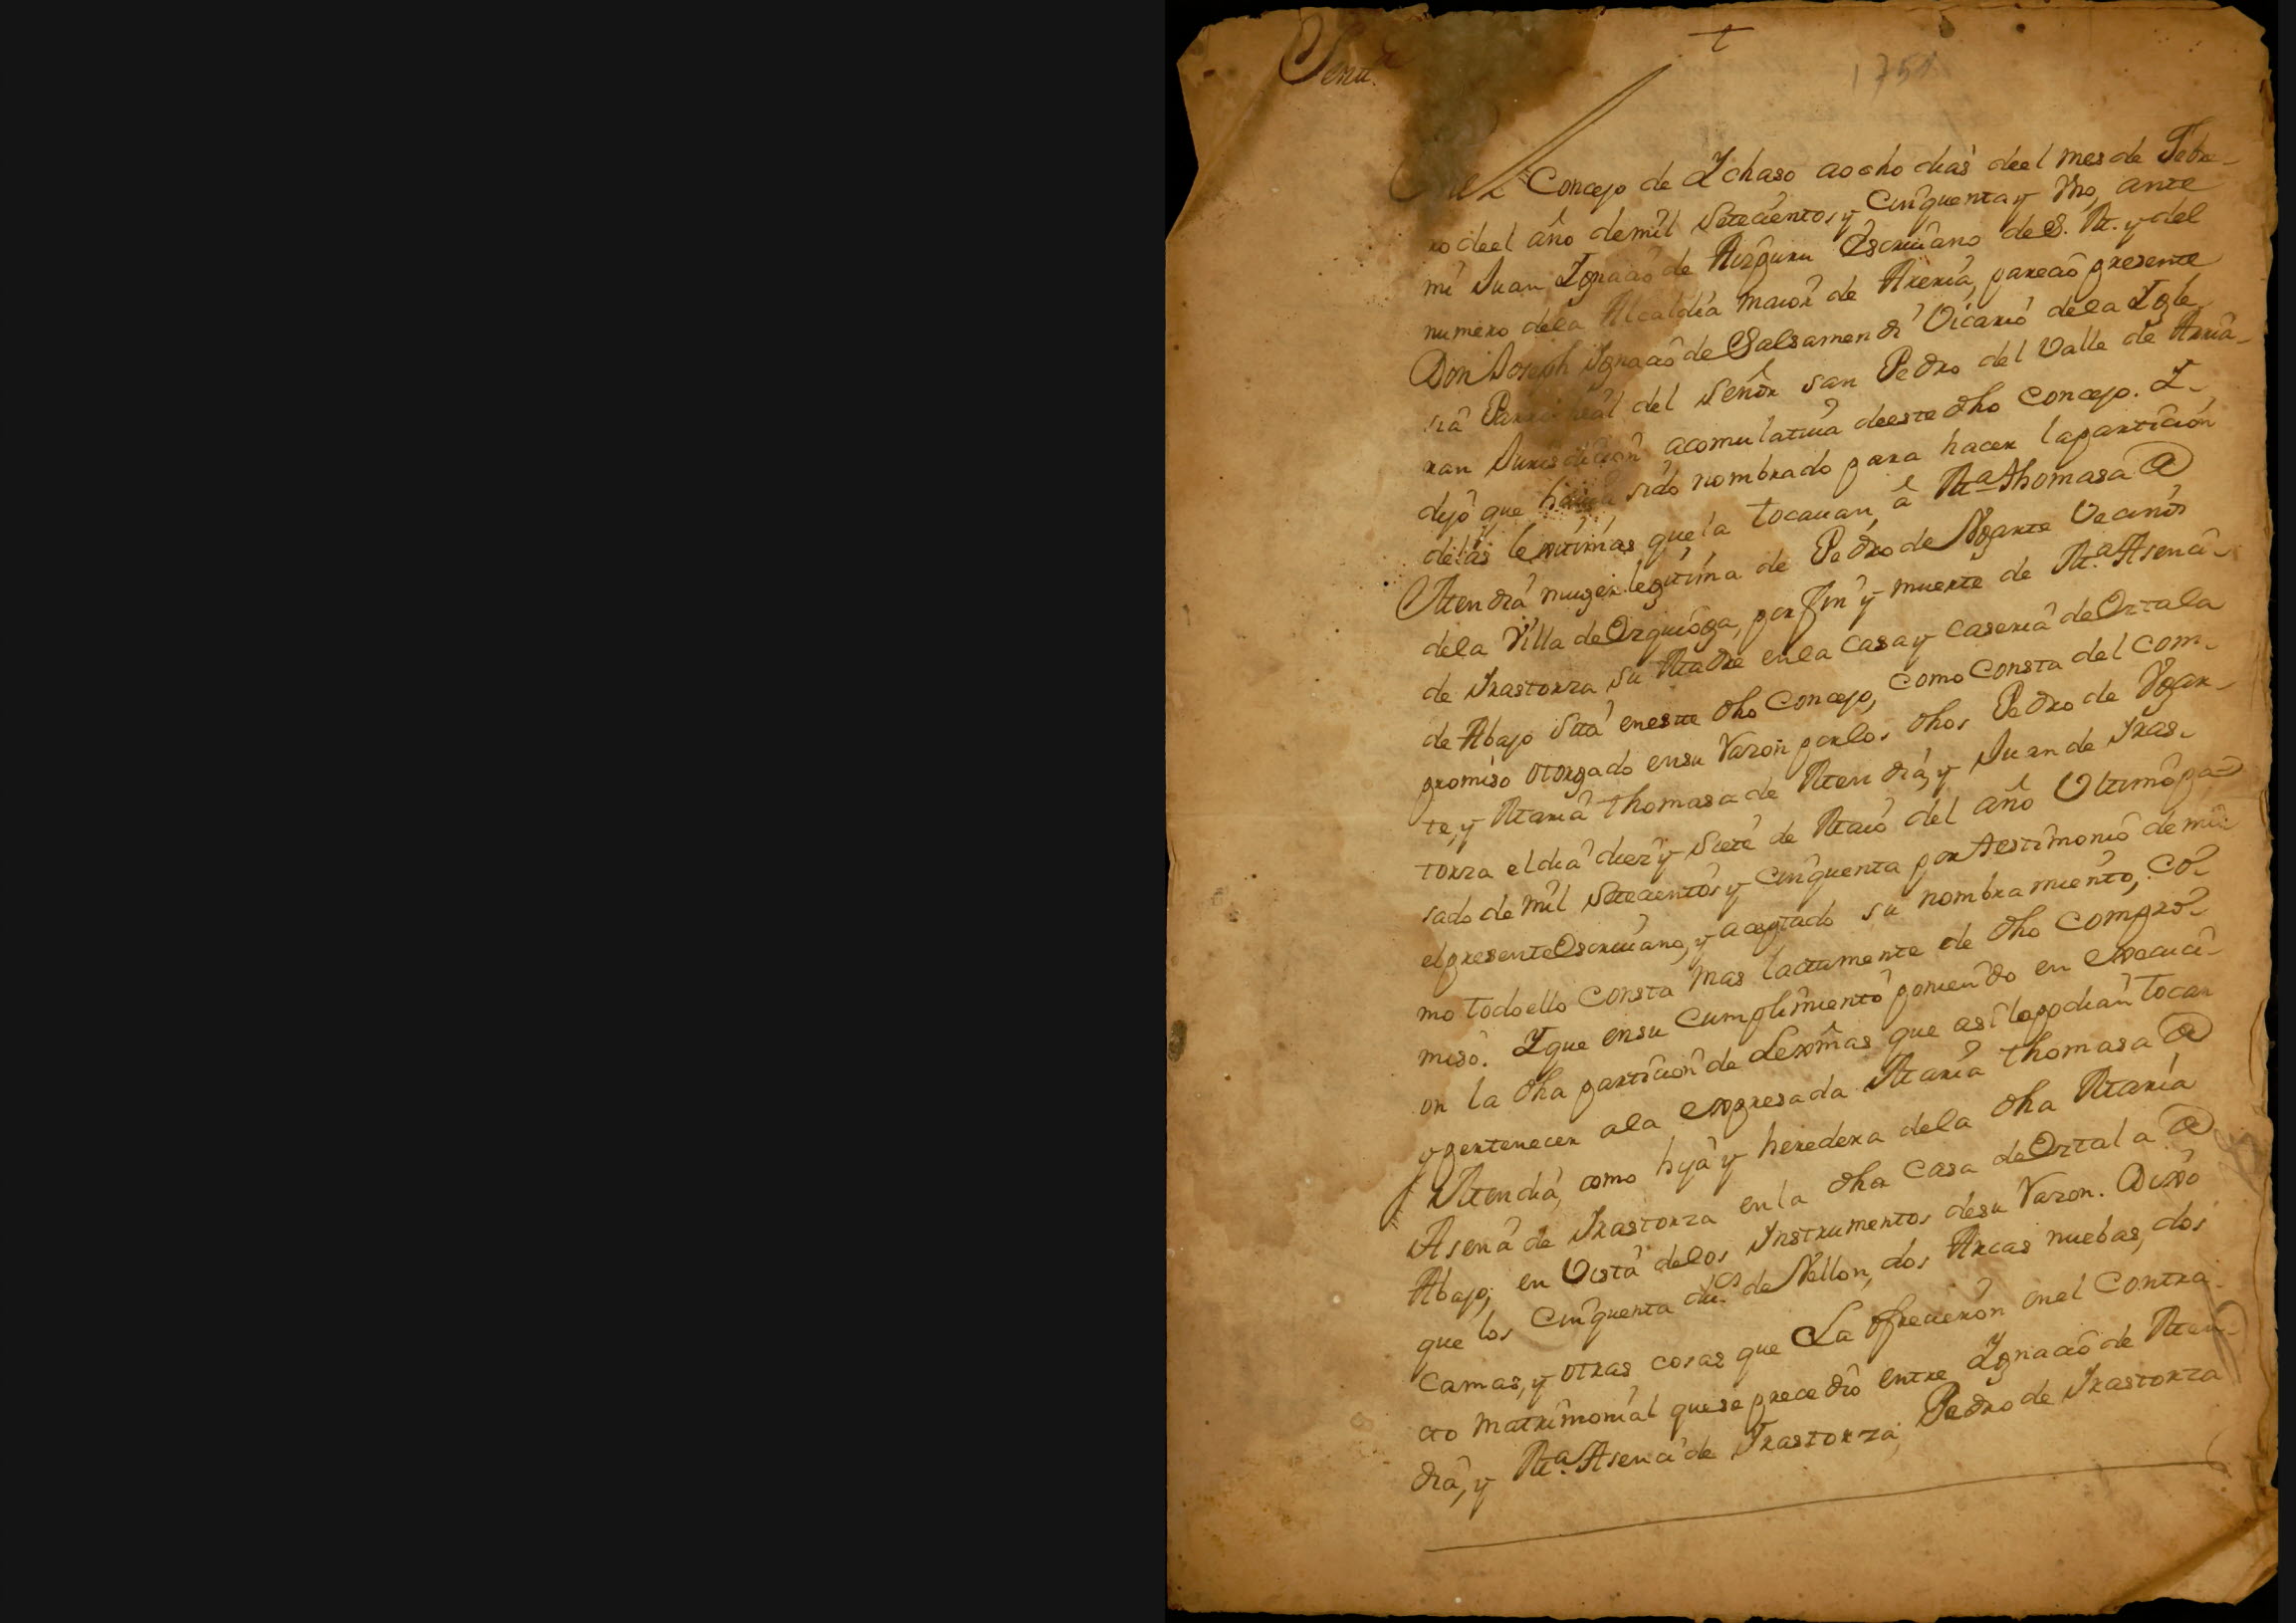 Sena
†
1751
En el Concejo de Ychaso a ocho dias deel mes de Febre-
ro deel año de mil Setecientos y Cinquenta y Vno, ante
mi Juan Ygnacio de Aizpuru Escriuano de S. M. y del
numero dela Alcaldia maior de Areria, parecio presente
Don Joseph Ygnacio de Galsamendi Vicario dela Ygle
sia Parrochial del Señor san Pedro del Valle de Arria-
ran Jurisdicion acomulatiua deeste dho Concejo. Y-
dijo que hauia sido nombrado para hacer lapartición
delas lexitimas que la tocauan, â Mª Thomasa de
Mendia muger legitima de Pedro de Vgarte Vecinos
dela Villa de Ezquioga, por fin y muerte de Mª Asenci-
de Yrastorza su Madre en la Casa y Caseria de Ortala
de Abajo Sita eneste dho Concejo, como Consta del Com-
promiso otorgado ensu Razon por los dhos Pedro de Vgar-
te, y Maria Thomasa de Mendia, y Juan de Yras-
torza el dia diez y Siete de Maio del año Vltimo pa-
sado de mil Setecientos y Cinquenta por testimonio de mi
el presente Escriuano, y aceptado su nombramiento, co-
mo todo ello consta mas lactamente de dho Compro-
miso. Y que ensu Cumplimiento poniendo en execuci-
on la dha partición de Lexmas que asi lapodian tocar
y pertenecer ala Expresada Maria Thomasa de
Mendia, como hija y heredera dela dha Maria
Asena de Yrastorza en la dha Casa de Ortala de
Abajo; en Vista delos Instrumentos desu Razon. Dixo
que los Cinquenta dus de Vellon, dos Arcas nuebas, dos
Camas, y otras cosas que La ofrecieron enel Contra
cto Matrimonial quese precedio entre Ygnacio de Men-
dia, y Mª Asencia de Yrastorza, Pedro de Yrastorza